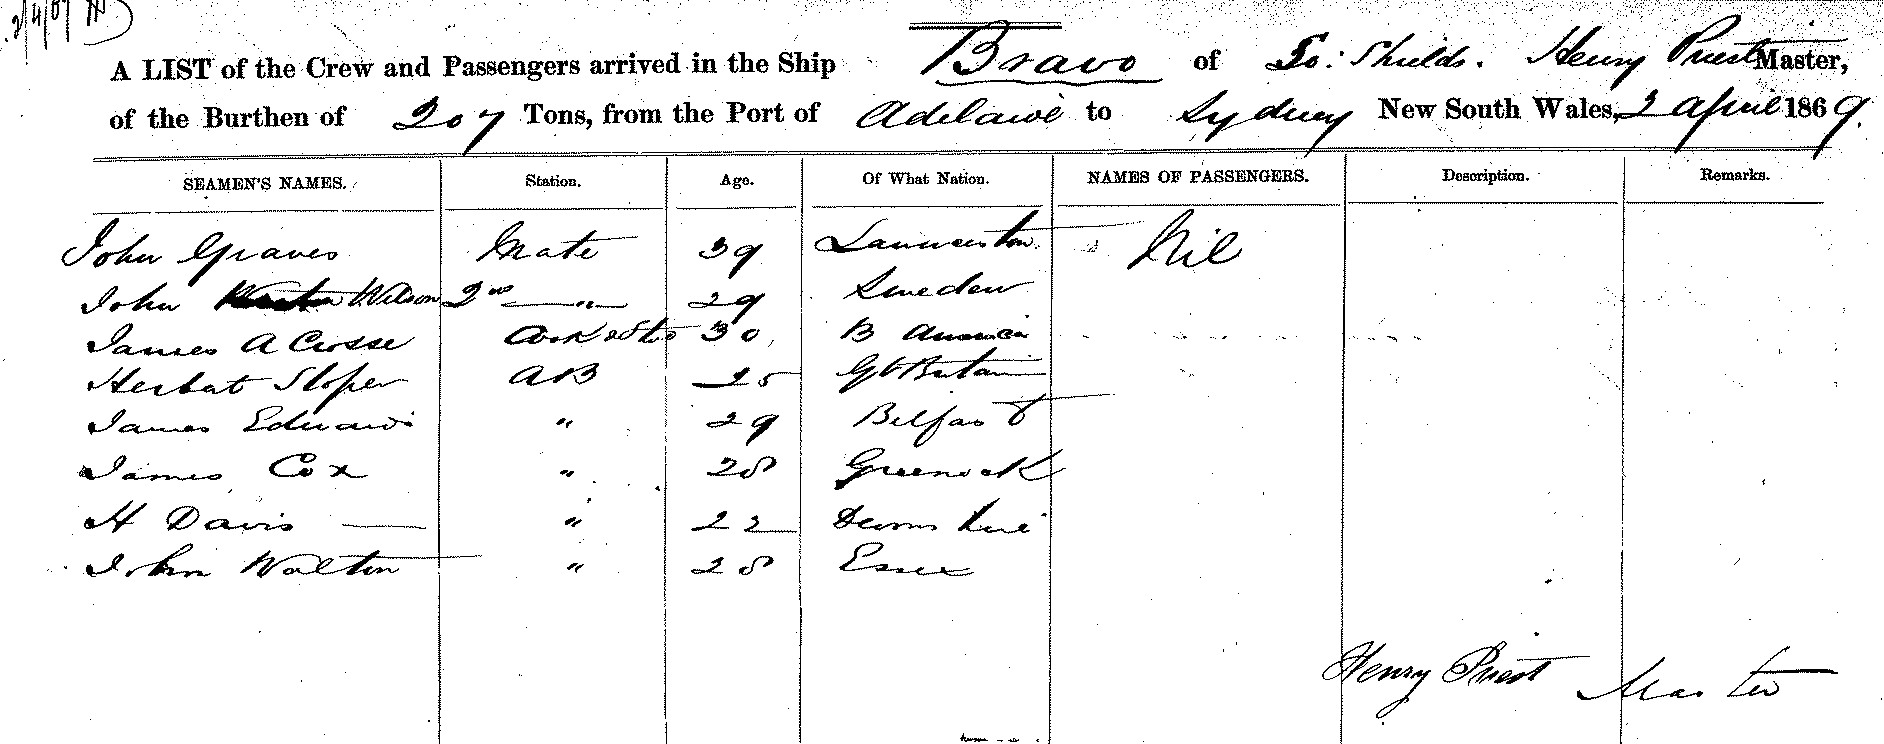 2/4/69
A LIST of the Crew and Passengers arrived in the Ship Bravo of So: Shields. Henry Priest Master,
of the Burthen of 207 Tons, from the Port of Adelaide to Sydney New South Wales, 2 April 1869.
SEAMEN'S NAMES. Station. Age. Of What Nation. NAMES OF PASSENGERS. Description. Remarks.
John Graves Mate 39 Launceston Nil
John Wilson 2nd " 29 Sweden
James A Crosse Cook & Std 30 B America
Herbert Sloper AB 25 Gt Britain
James Edwards " 29 Belfast
James Cox " 28 Greenock
H Davis " 22 Devonshire
John Walton " 28 Essex
Henry Priest Master